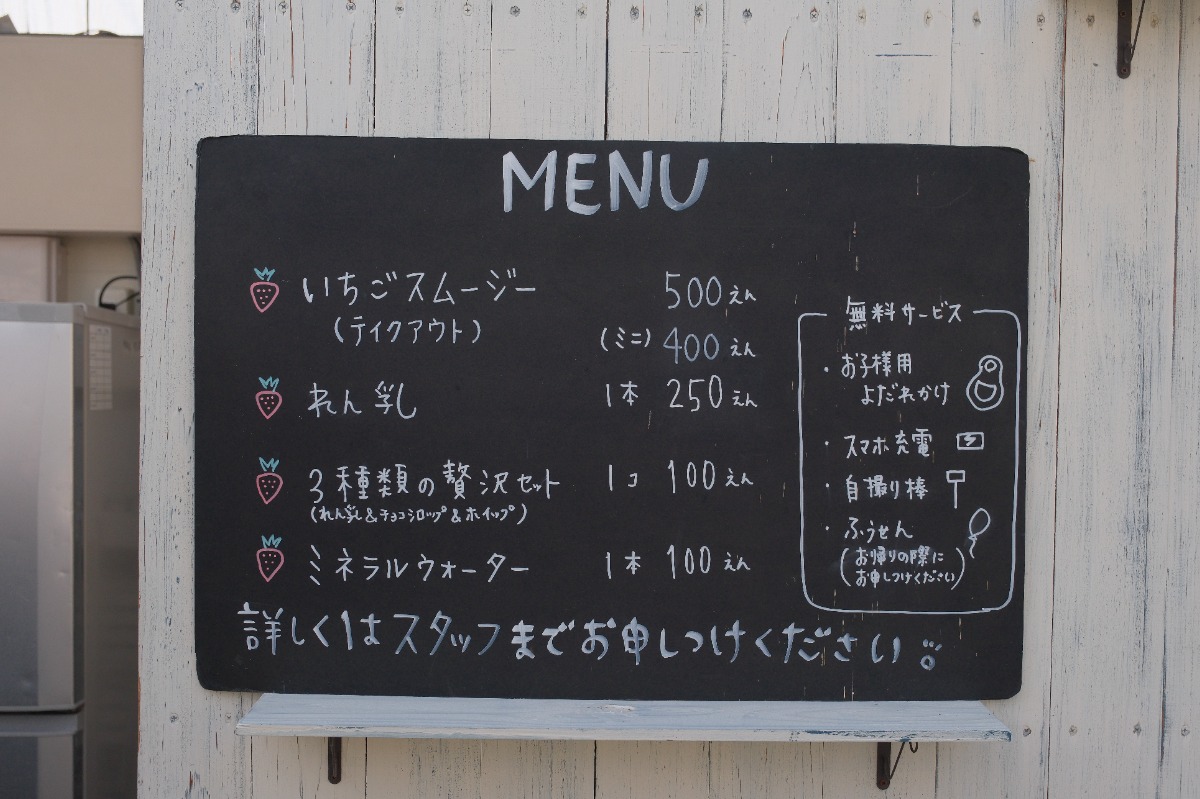 MENU
いちごスムージー 500えん
(テイクアウト) (ミニ) 400えん
れん乳 1本 250えん
3種類の贅沢セット 1コ 100えん
(れん乳&チョコシロップ&ホイップ)
ミネラルウォーター 1本 100えん
無料サービス
・お子様用
よだれかけ
・スマホ充電
・自撮り棒
・ふうせん
(お帰りの際に
お申しつけください)
詳しくはスタッフまでお申しつけください